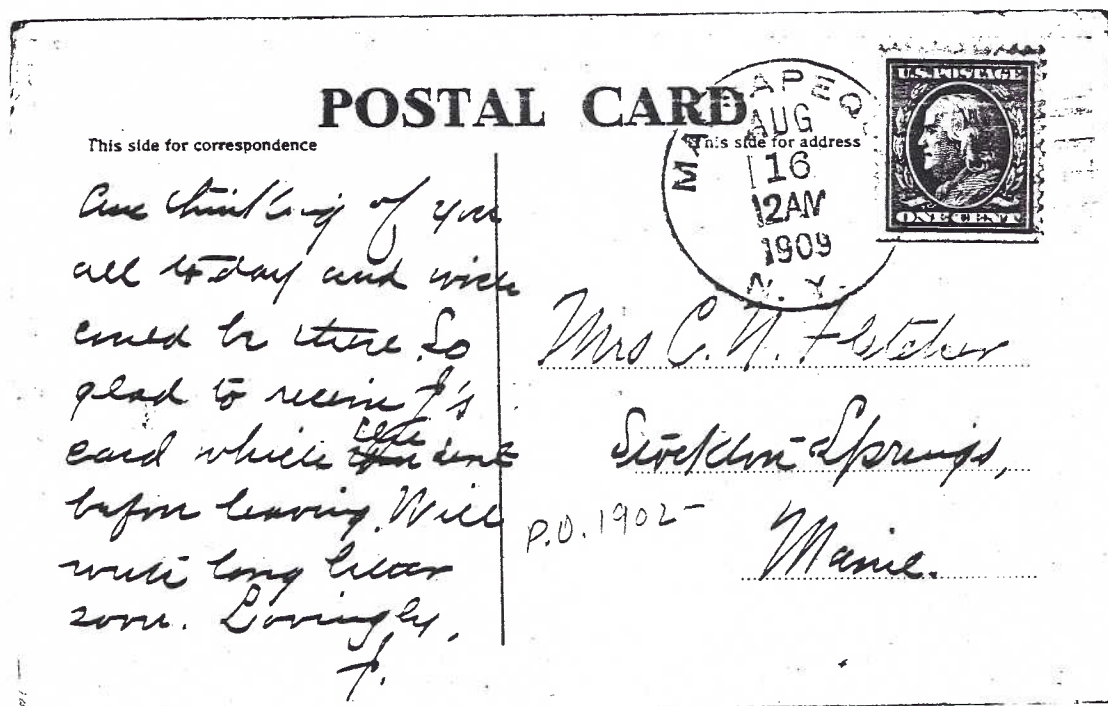 POSTAL CARD
This side for correspondence
This side for address
MASSAPEQ
AUG
16
12AM
1909
N. Y.
U.S. POSTAGE
ONE CENT
Am thinking of you
all to-day and wish
could be there. So
glad to receive F's
card which she sent
before leaving. Will
write long letter
soon. Lovingly,
F.
Mrs C. N. Fletcher
Stockton Springs,
Maine.
P.O. 1902-